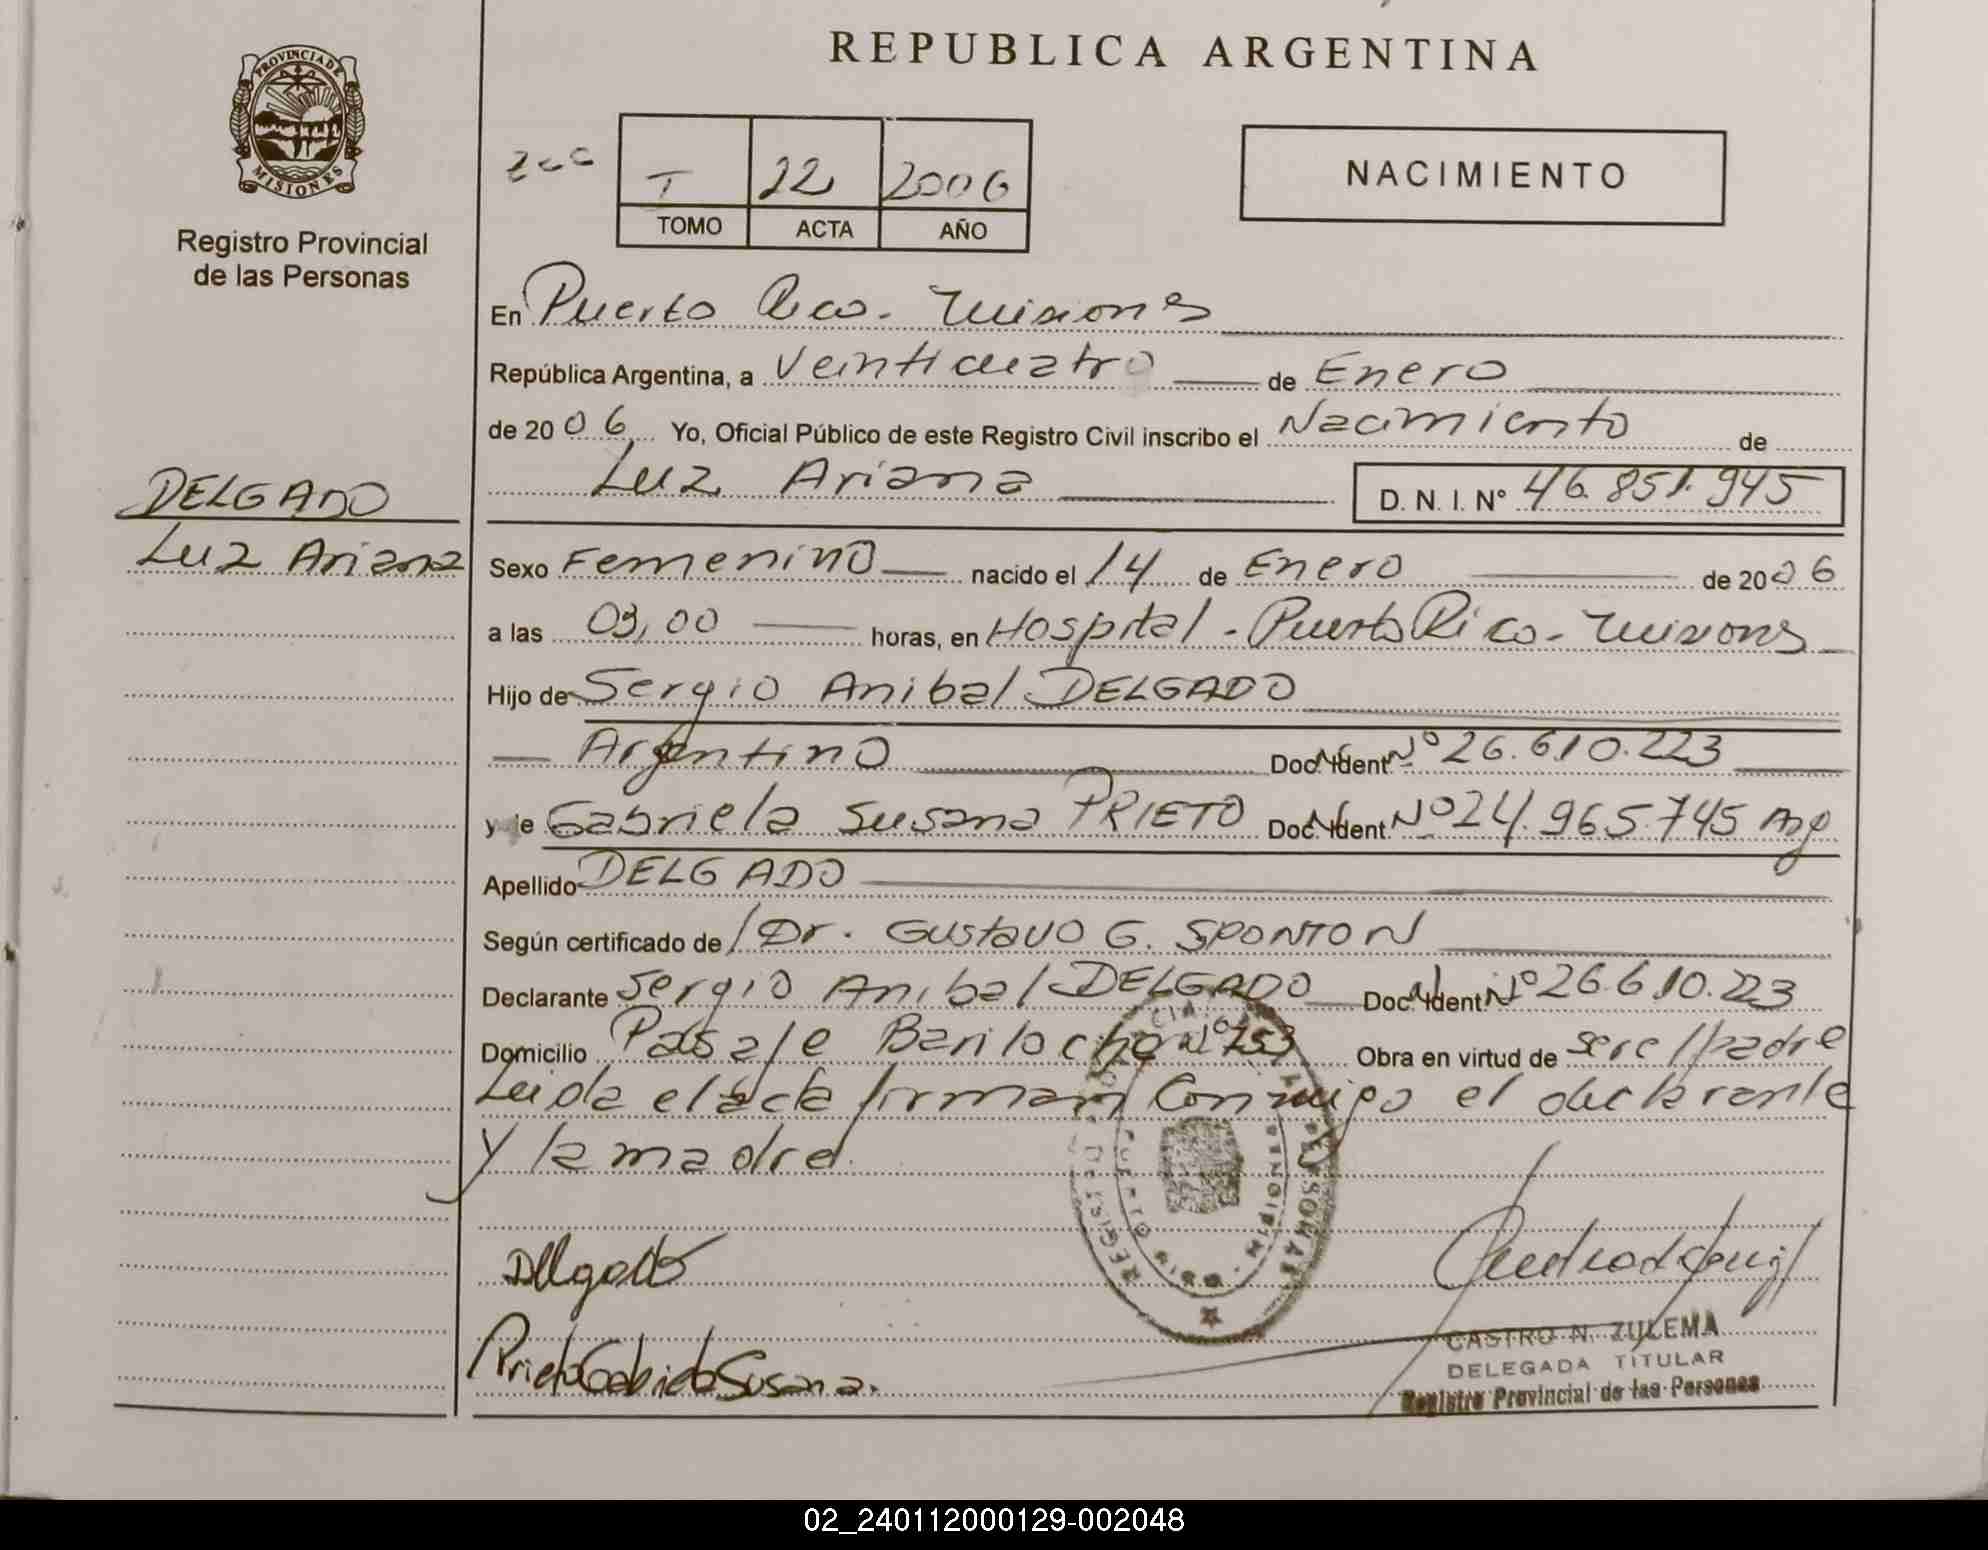 REPUBLICA ARGENTINA
PROVINCIA DE MISIONES
Registro Provincial
de las Personas
T 22 2006
TOMO ACTA AÑO
NACIMIENTO
En Puerto Rico. Misiones
República Argentina, a Veinticuatro de Enero
de 2006 Yo, Oficial Público de este Registro Civil inscribo el Nacimiento de
Luz Ariana D. N. I. Nº 46.851.945
DELGADO
Luz Ariana
Sexo Femenino nacido el 14 de Enero de 2006
a las 03,00 horas, en Hospital - Puerto Rico - Misiones
Hijo de Sergio Anibal DELGADO
Argentino Doc. Ident. Nº 26.610.223
y de Gabriela Susana PRIETO Doc. Ident. Nº 24.965.745 Arg
Apellido DELGADO
Según certificado de Dr. Gustavo G. SPONTON
Declarante Sergio Anibal DELGADO Doc. Ident. Nº 26.610.223
Domicilio Pasaje Bariloche Nº 753 Obra en virtud de ser el padre
Leida el acta firman conmigo el declarante
y la madre.
Delgado
Prieto Gabriela Susana.
CASTRO N. ZULEMA
DELEGADA TITULAR
Registro Provincial de las Personas
02_240112000129-002048